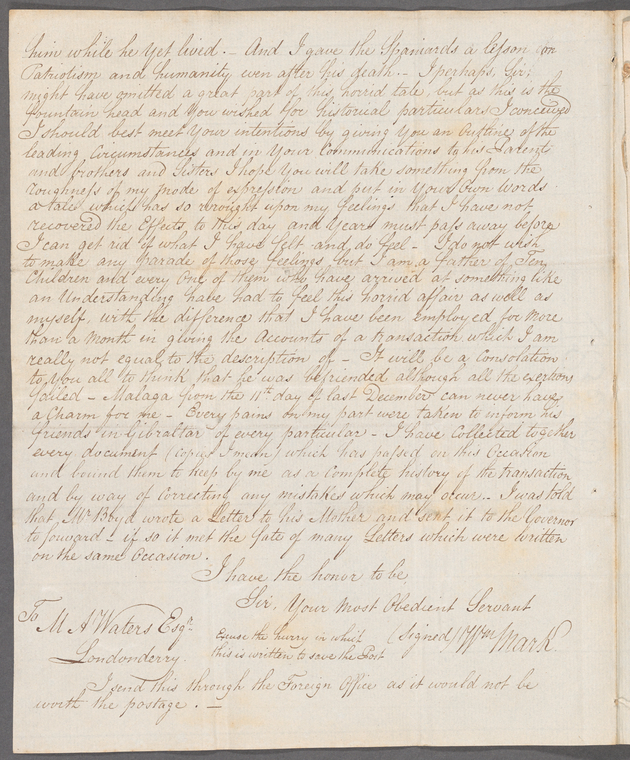 him while he yet lived. – And I gave the Spaniards a lesson on
Patriotism and humanity even after his death. – I perhaps, Sir,
might have omitted a great part of this horrid tale, but as this is the
fountain head and you wished for historical particulars I conceived
I should best meet your intentions by giving you an outline of the
leading Circumstances and in Your Communications to his Parents
and brothers and Sisters I hope You will take something from the
roughness of my mode of expression and put in Your own words
a tale which has so wrought upon my feelings that I have not
recovered the Effects to this day and Years must pass away before
I can get rid of what I have felt and do feel – I do not wish
to make any parade of those feelings, but I am a father of Ten
Children and every One of them who have arrived at something like
an Understanding have had to feel this horrid affair as well as
myself, with the difference that I have been Employed for more
than a Month in giving the Accounts of a transaction which I am
really not equal to the description of – It will be a Consolation
to You all to think that he was befriended although all the exertions
failed – Malaga from the 11th day of last December can never have
a Charm for me – Every pains on my part were taken to inform his
friends in Gibraltar of every particular – I have Collected together
every document (copies I mean) which has passed on this Occasion
and bound them to keep by me as a Complete history of the transaction
and by way of correcting any mistakes which may occur. – I was told
that Mr Boyd wrote a Letter to his Mother and sent it to the Governor
to forward – if so it met the fate of many Letters which were written
on the same Occasion.
I have the honor to be
Sir, Your Most Obedient Servant
To
M A Waters Esqr.
Londonderry.
Excuse the hurry in which
this is written to save the Post
(Signed) Wm Mark
I send this through the Foreign Office as it would not be
worth the postage. –